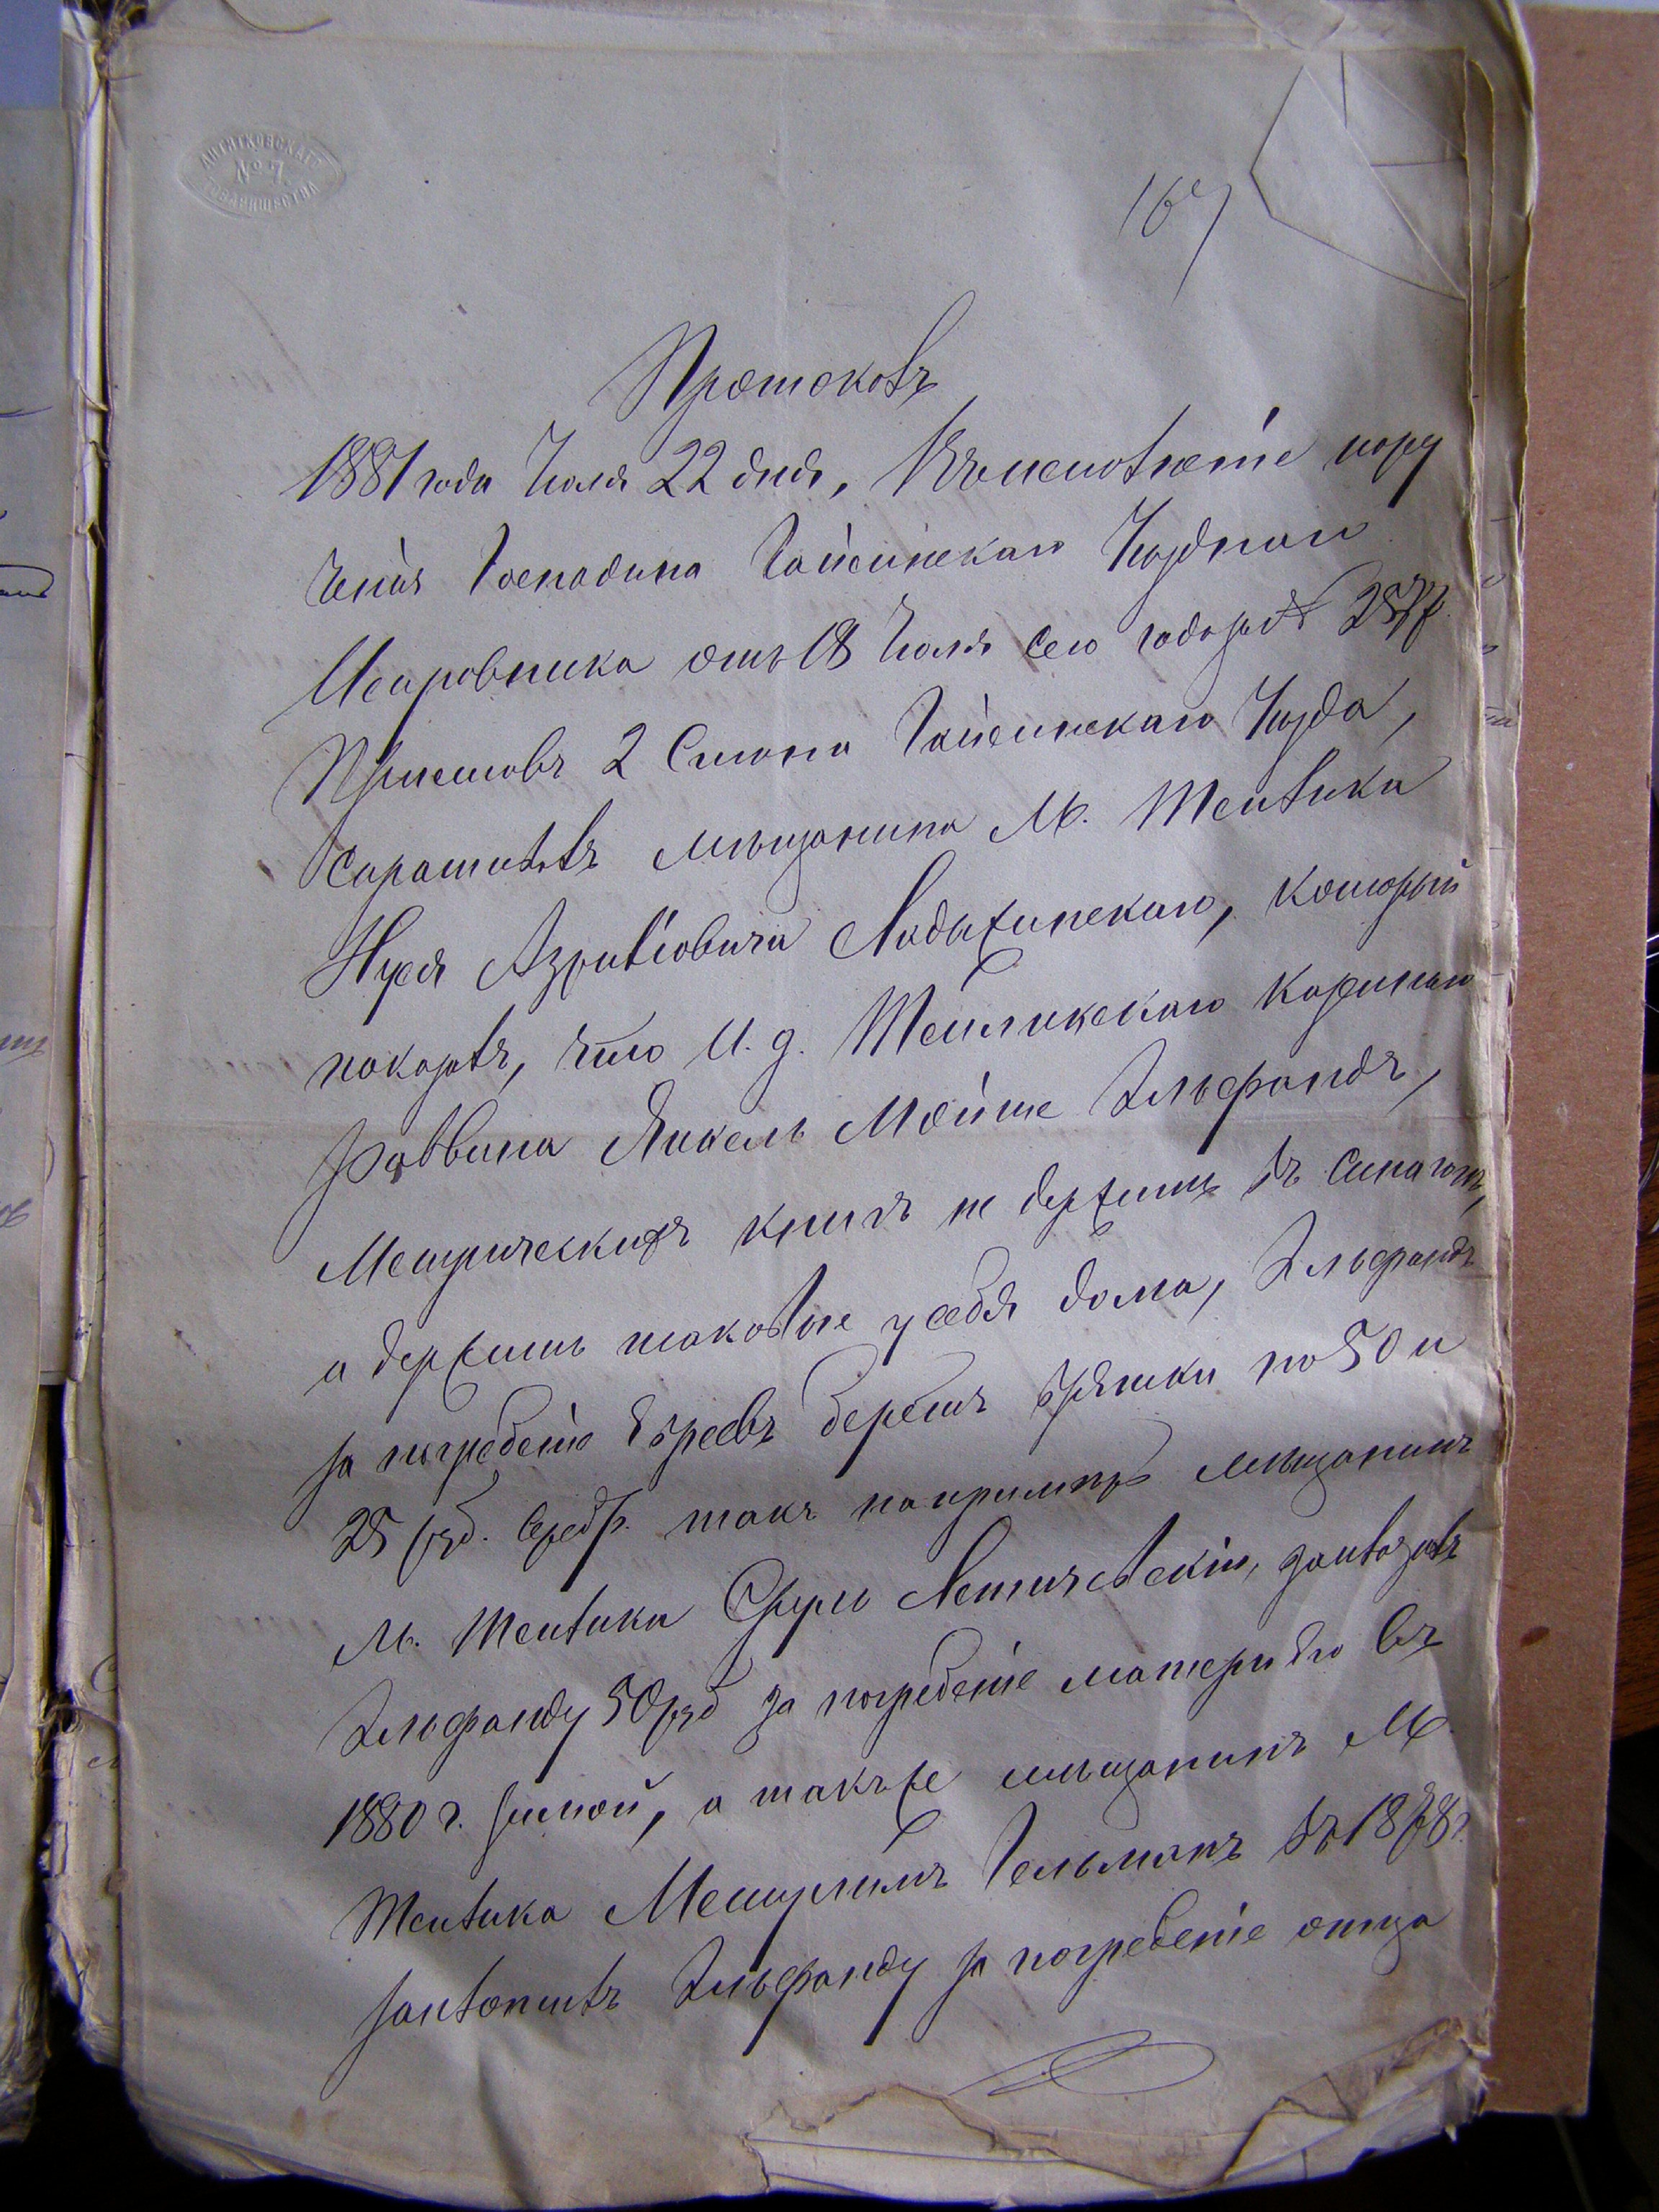 АНГЕТКОВСКАГО
№ 7.
ТОВАРИЩЕСТВА
167
Протоколъ
1881 года Іюля 22 дня, Въ исполненіе пору
ченія Господина Гайсинскаго Уѣзднаго
Исправника отъ 18 Іюля сего года за №
Приставъ 2 Стана Гайсинскаго Уѣзда,
спрашивалъ мѣщанина М. Теплика
Нуся Азріилевича Ладыжинскаго, который
показалъ, что И. д. Тепликскаго Казеннаго
Раввина Янкель Мойше Эльфандъ,
Метрическихъ книгъ не держитъ въ синагогѣ,
а держитъ таковые у себя дома, Эльфандъ
за погребеніе Евреевъ беретъ взятки по 50 и
25 руб. серебр. такъ напримѣръ мѣщанинъ
м. Теплика Сруль Летичевскій, заплатилъ
Эльфанду 50 руб за погребеніе матери его въ
1880 г. зимой, а такъ же мѣщанинъ М.
Теплика Мешулимъ Гельманъ въ 1878 г.
заплатилъ Эльфанду за погребеніе отца